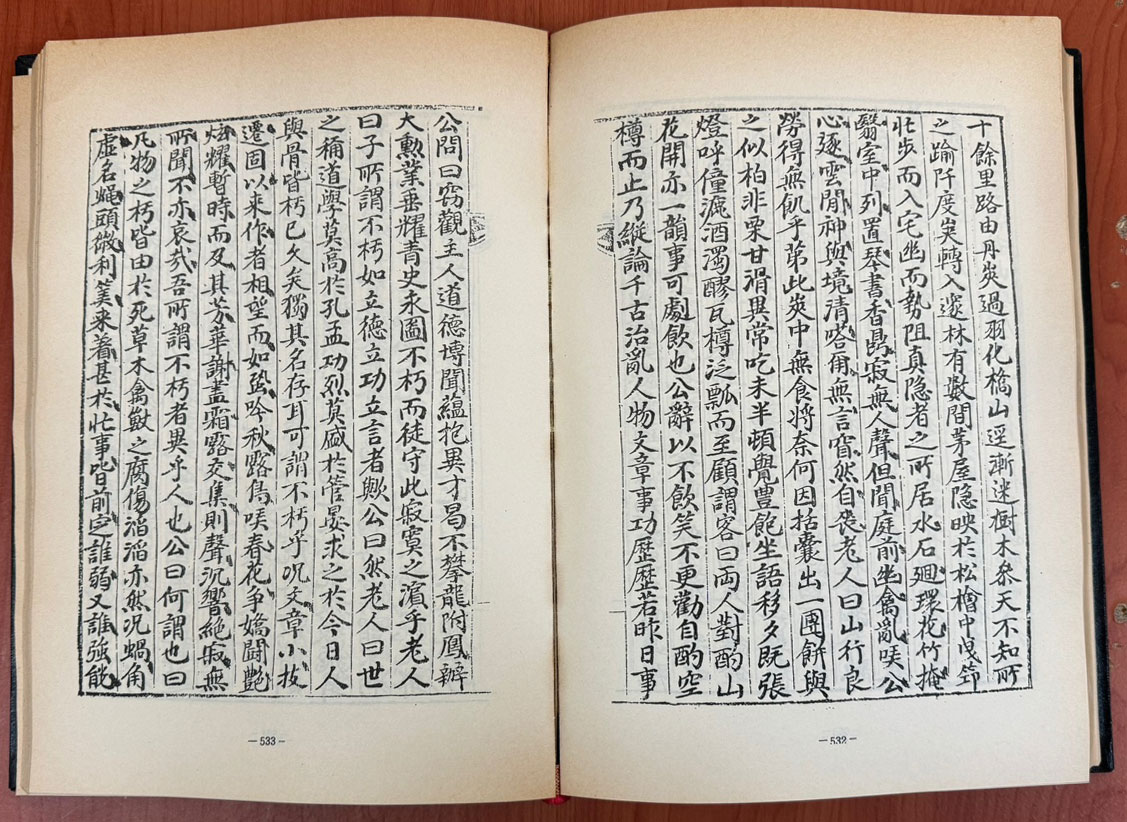 十餘里路由丹炎過羽化橋山逕漸迷樹木叅天不知所
之踰阡度巷轉入邃林有數間茅屋隐映於松檜中曳笻
步而入宅幽而勢阻真隐者之所居水石廻環花竹掩
翳室中列置琴書香鼎寂無人聲但聞庭前幽禽亂啼公
心逐雲閒神與境清嗒侢無言窅然自喪老人曰山行良
勞得無飢乎第此炎中無食將奈何因括囊出一團餠與
之似柏非栗甘滑異常吃未半頓覺豊飽坐語移夕既張
燈呼僮漉酒濁醪瓦樽泛瓢而至顧謂客曰兩人對酌山
花開亦一韻事可劇飲也公辭以不飲笑不更勸自酌空
樽而止乃縱論千古治亂人物文章事功歷歷若昨日事
公問曰竊觀主人道德博聞蘊抱異才曷不攀龍附鳳辦
大勳業垂耀青史永圖不朽而徒守此寂寞之濱乎老人
曰子所謂不朽如立德立功立言者歟公曰然老人曰世
之稱道學莫高於孔孟功烈莫盛於管晏求之於今日人
與骨皆朽已久矣獨其名存耳可謂不朽乎况文章小技
遷固以来作者相望而如蛩吟秋露鳥啼春花爭嬌鬪艶
炫耀暫時而及其芳華謝盡霜露交集則聲沉響絶寂無
所聞不亦哀哉吾所謂不朽者異乎人也公曰何謂也曰
凡物之朽皆由於死草木禽獸之腐傷滔滔亦然况蝸角
虛名蝇頭微利筭来着甚於忙事皆前定誰弱又誰強能